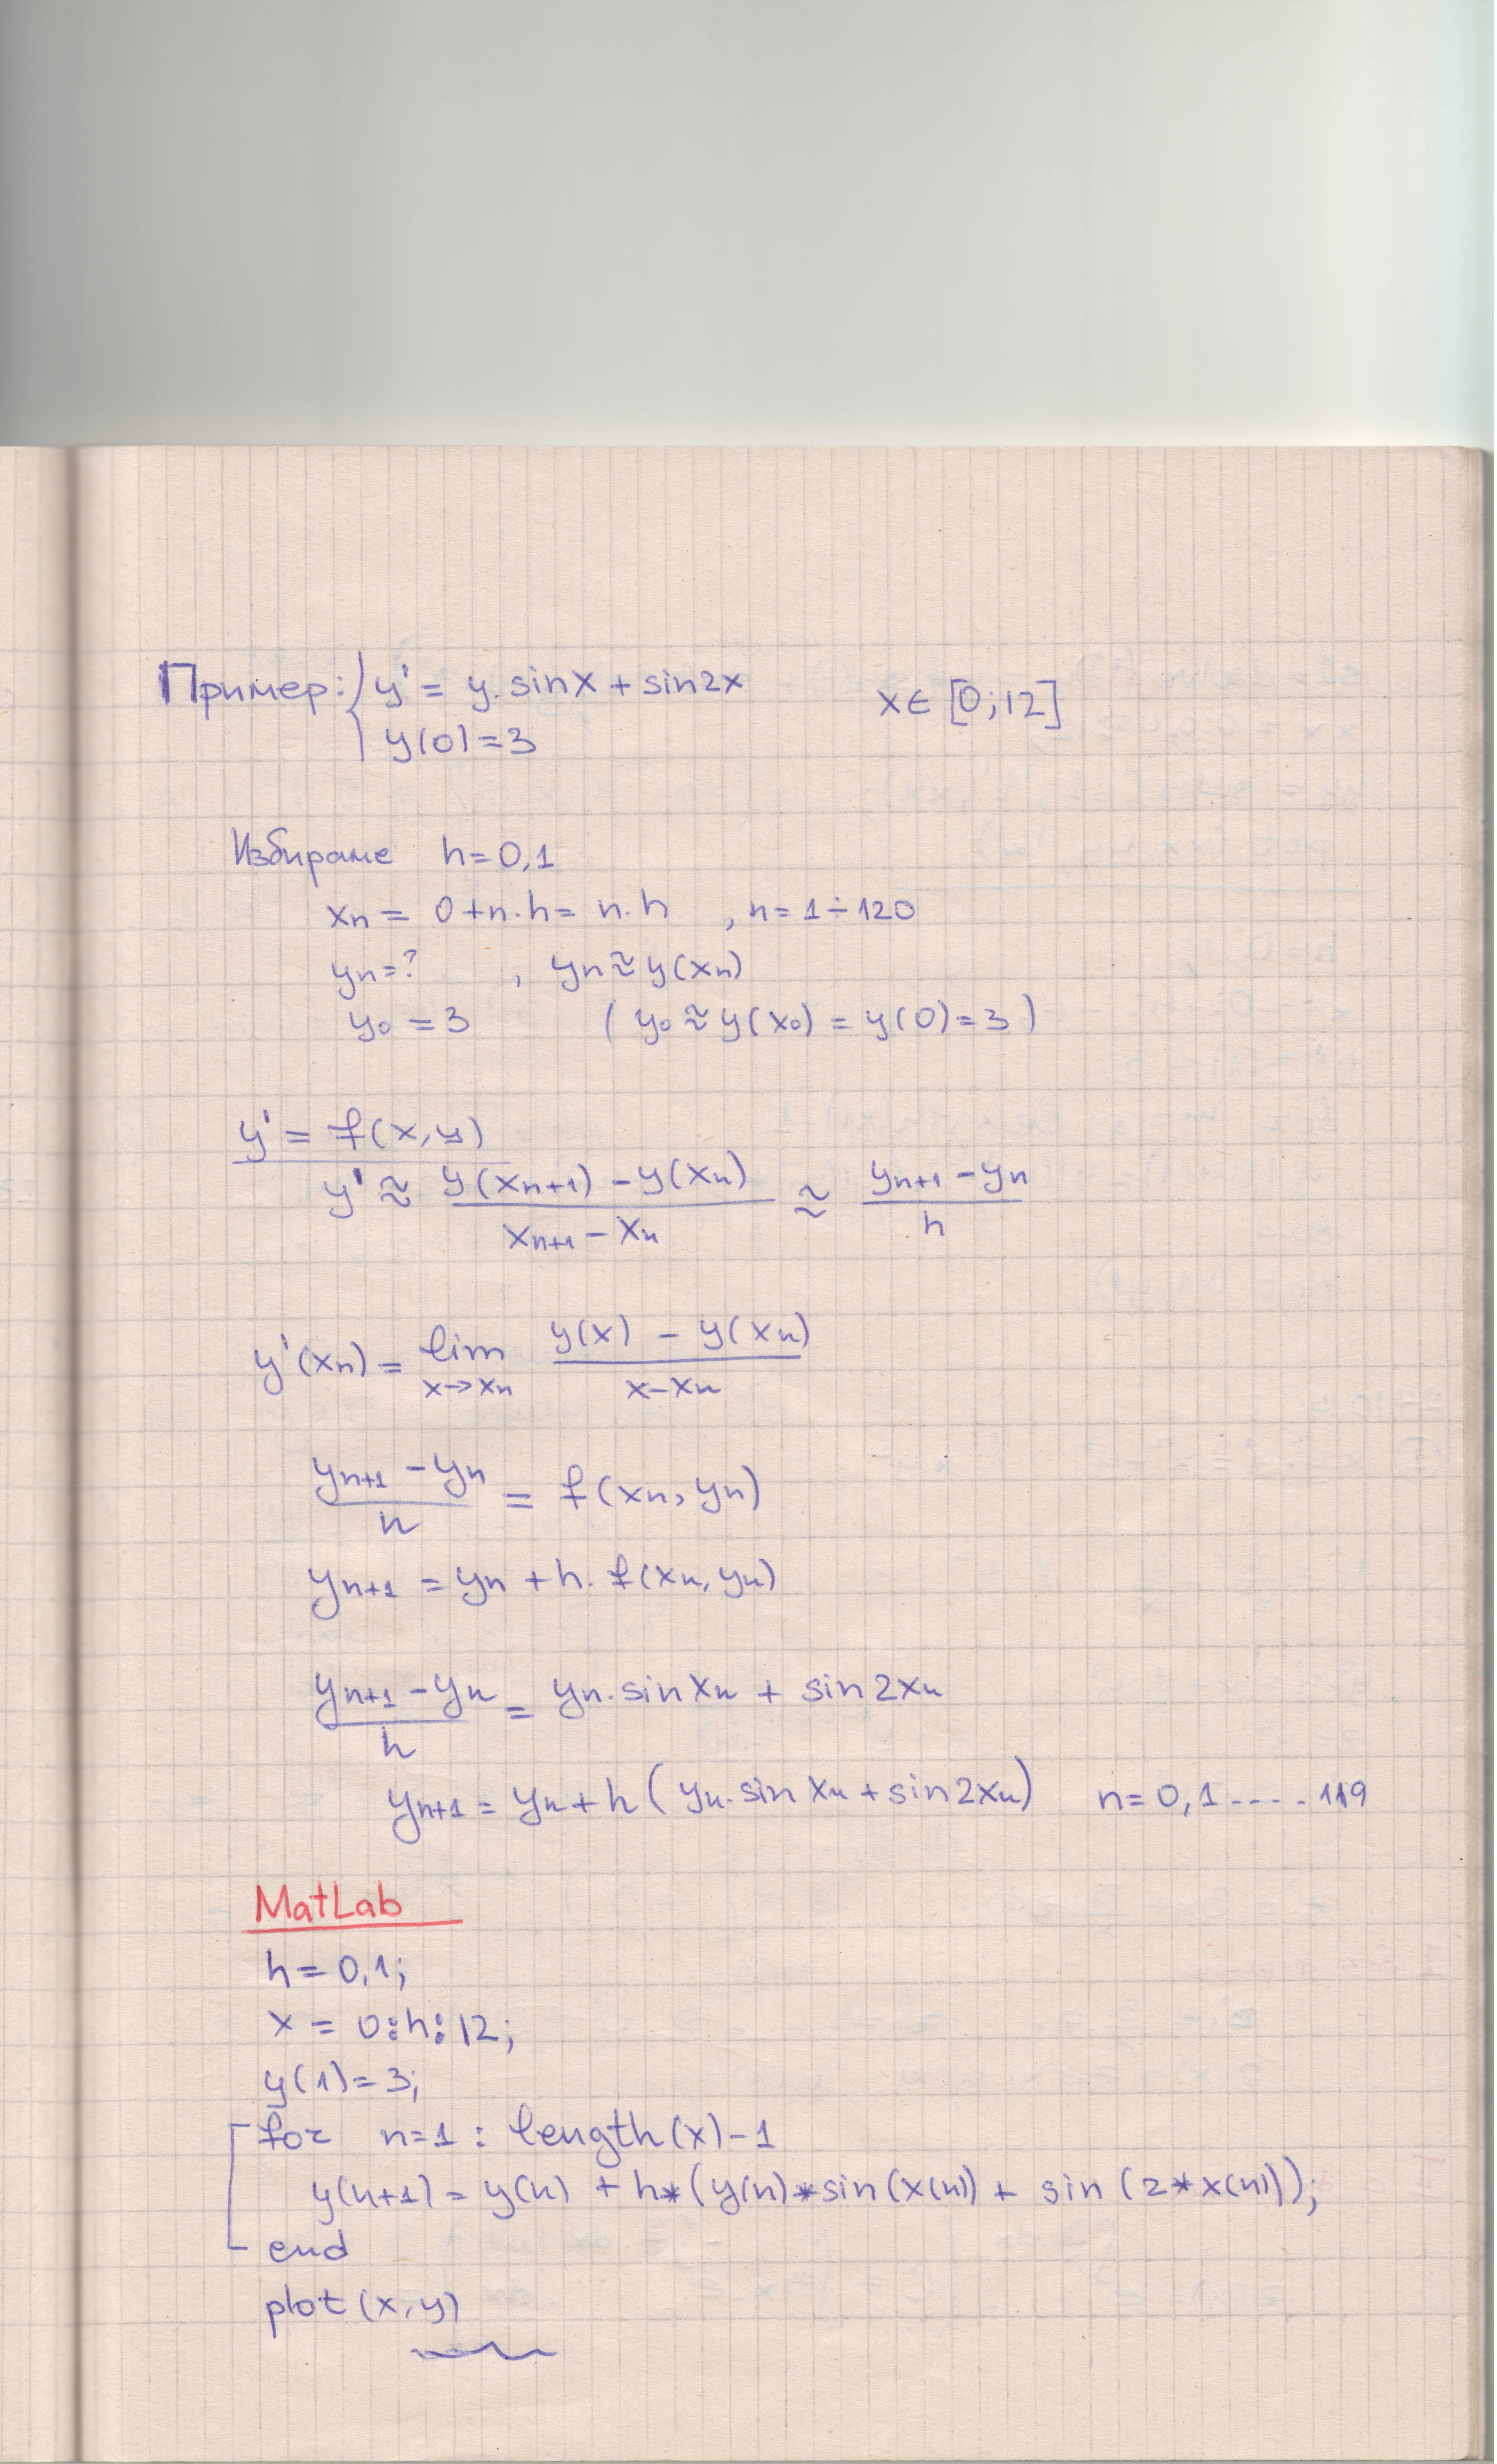 Пример: { y' = y. sinx + sin2x x∈ [0;12]
y(0)=3
Избираме h=0,1
xn = 0+n.h= n.h , n=1÷120
yn=? , yn≈y(xn)
y0 =3 ( y0≈y(x0) = y(0)=3 )
y' = f(x,y)
y' ≈ y(xn+1) - y(xn) / xn+1 - xn ≈ yn+1 - yn / h
y'(xn) = lim x→xn y(x) - y(xn) / x-xn
yn+1 - yn / h = f(xn, yn)
yn+1 = yn + h. f(xn, yn)
yn+1 - yn / h = yn.sinxn + sin2xn
yn+1 = yn + h ( yn.sin xn + sin2xn) n=0,1....119
MatLab
h=0,1;
x = 0:h:12;
y(1)=3;
for n=1 : length(x)-1
y(n+1) = y(n) + h*(y(n)*sin(x(n)) + sin (2*x(n)));
end
plot (x,y)